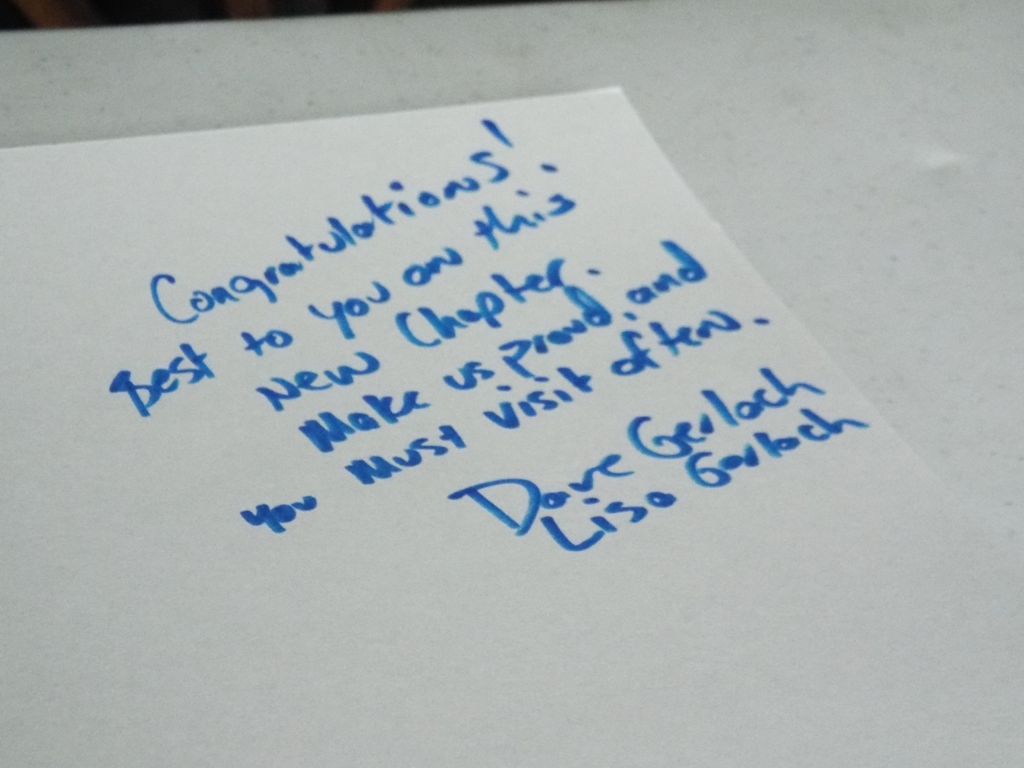 Congratulations!
Best to you on this
New Chapter.
Make us proud, and
you must visit often.
Dave Gerlach
Lisa Gerlach